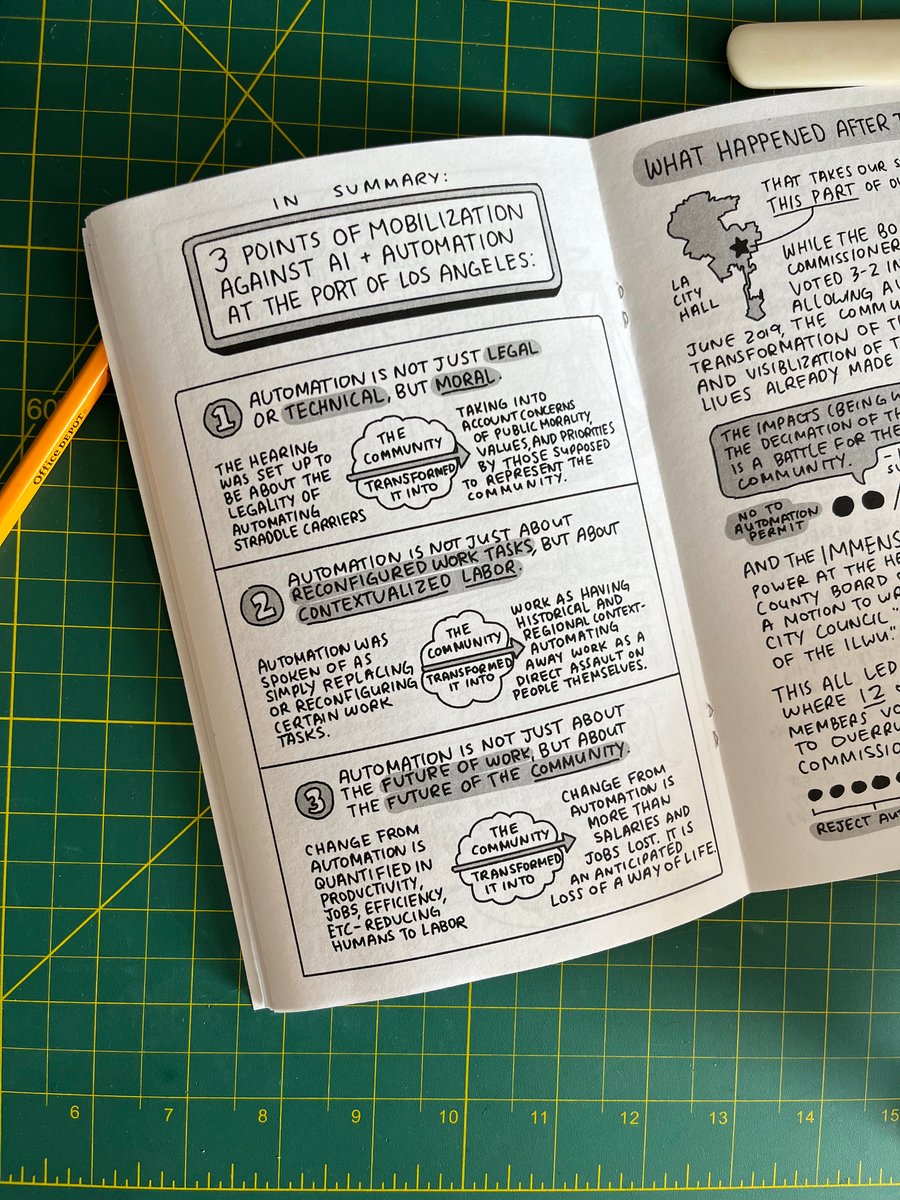 IN SUMMARY:
3 POINTS OF MOBILIZATION
AGAINST AI + AUTOMATION
AT THE PORT OF LOS ANGELES:
1
AUTOMATION IS NOT JUST LEGAL
OR TECHNICAL, BUT MORAL.
THE HEARING
WAS SET UP TO
BE ABOUT THE
LEGALITY OF
AUTOMATING
STRADDLE CARRIERS
THE
COMMUNITY
TRANSFORMED
IT INTO
TAKING INTO
ACCOUNT CONCERNS
OF PUBLIC MORALITY,
VALUES, AND PRIORITIES
BY THOSE SUPPOSED
TO REPRESENT THE
COMMUNITY.
2
AUTOMATION IS NOT JUST ABOUT
RECONFIGURED WORK TASKS, BUT ABOUT
CONTEXTUALIZED LABOR.
AUTOMATION WAS
SPOKEN OF AS
SIMPLY REPLACING
OR RECONFIGURING
CERTAIN WORK
TASKS.
THE
COMMUNITY
TRANSFORMED
IT INTO
WORK AS HAVING
HISTORICAL AND
REGIONAL CONTEXT-
AUTOMATING
AWAY WORK AS A
DIRECT ASSAULT ON
PEOPLE THEMSELVES.
3
AUTOMATION IS NOT JUST ABOUT
THE FUTURE OF WORK, BUT ABOUT
THE FUTURE OF THE COMMUNITY.
CHANGE FROM
AUTOMATION IS
QUANTIFIED IN
PRODUCTIVITY,
JOBS, EFFICIENCY,
ETC- REDUCING
HUMANS TO LABOR
THE
COMMUNITY
TRANSFORMED
IT INTO
CHANGE FROM
AUTOMATION IS
MORE THAN
SALARIES AND
JOBS LOST. IT IS
AN ANTICIPATED
LOSS OF A WAY OF LIFE.
WHAT HAPPENED AFTER
THAT TAKES OUR
THIS PART OF
LA
CITY
HALL
WHILE THE
COMMISSIONER
VOTED 3-2
ALLOWING
JUNE 2019, THE
TRANSFORMATION OF
AND VISIBLIZATION OF
LIVES ALREADY MADE
THE IMPACTS (BEING
THE DECIMATION OF
IS A BATTLE FOR THE
COMMUNITY.
NO TO
AUTOMATION
PERMIT
AND THE
POWER AT THE
COUNTY BOARD
A MOTION TO
CITY COUNCIL"
OF THE ILWU."
THIS ALL LED
WHERE 12
MEMBERS
TO
REJECT
Office DEPOT
60
6 7 8 9 10 11 12 13 15